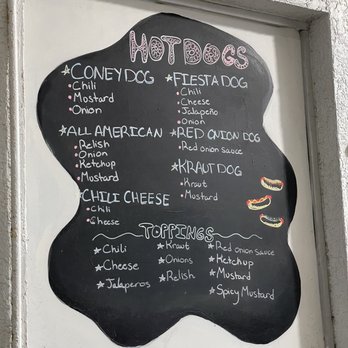 HOTDOGS
★CONEY DOG
•Chili
•Mustard
•Onion
★ALL AMERICAN
•Relish
•Onion
•Ketchup
•Mustard
★CHILI CHEESE
•Chili
•Cheese
★FIESTA DOG
•Chili
•Cheese
•Jalapeño
•Onion
★RED ONION DOG
•Red onion sauce
★KRAUT DOG
•Kraut
•Mustard
TOPPINGS
★Chili
★Cheese
★Jalaperos
★Kraut
★Onions
★Relish
★Red onion sauce
★Ketchup
★Mustard
★Spicy Mustard